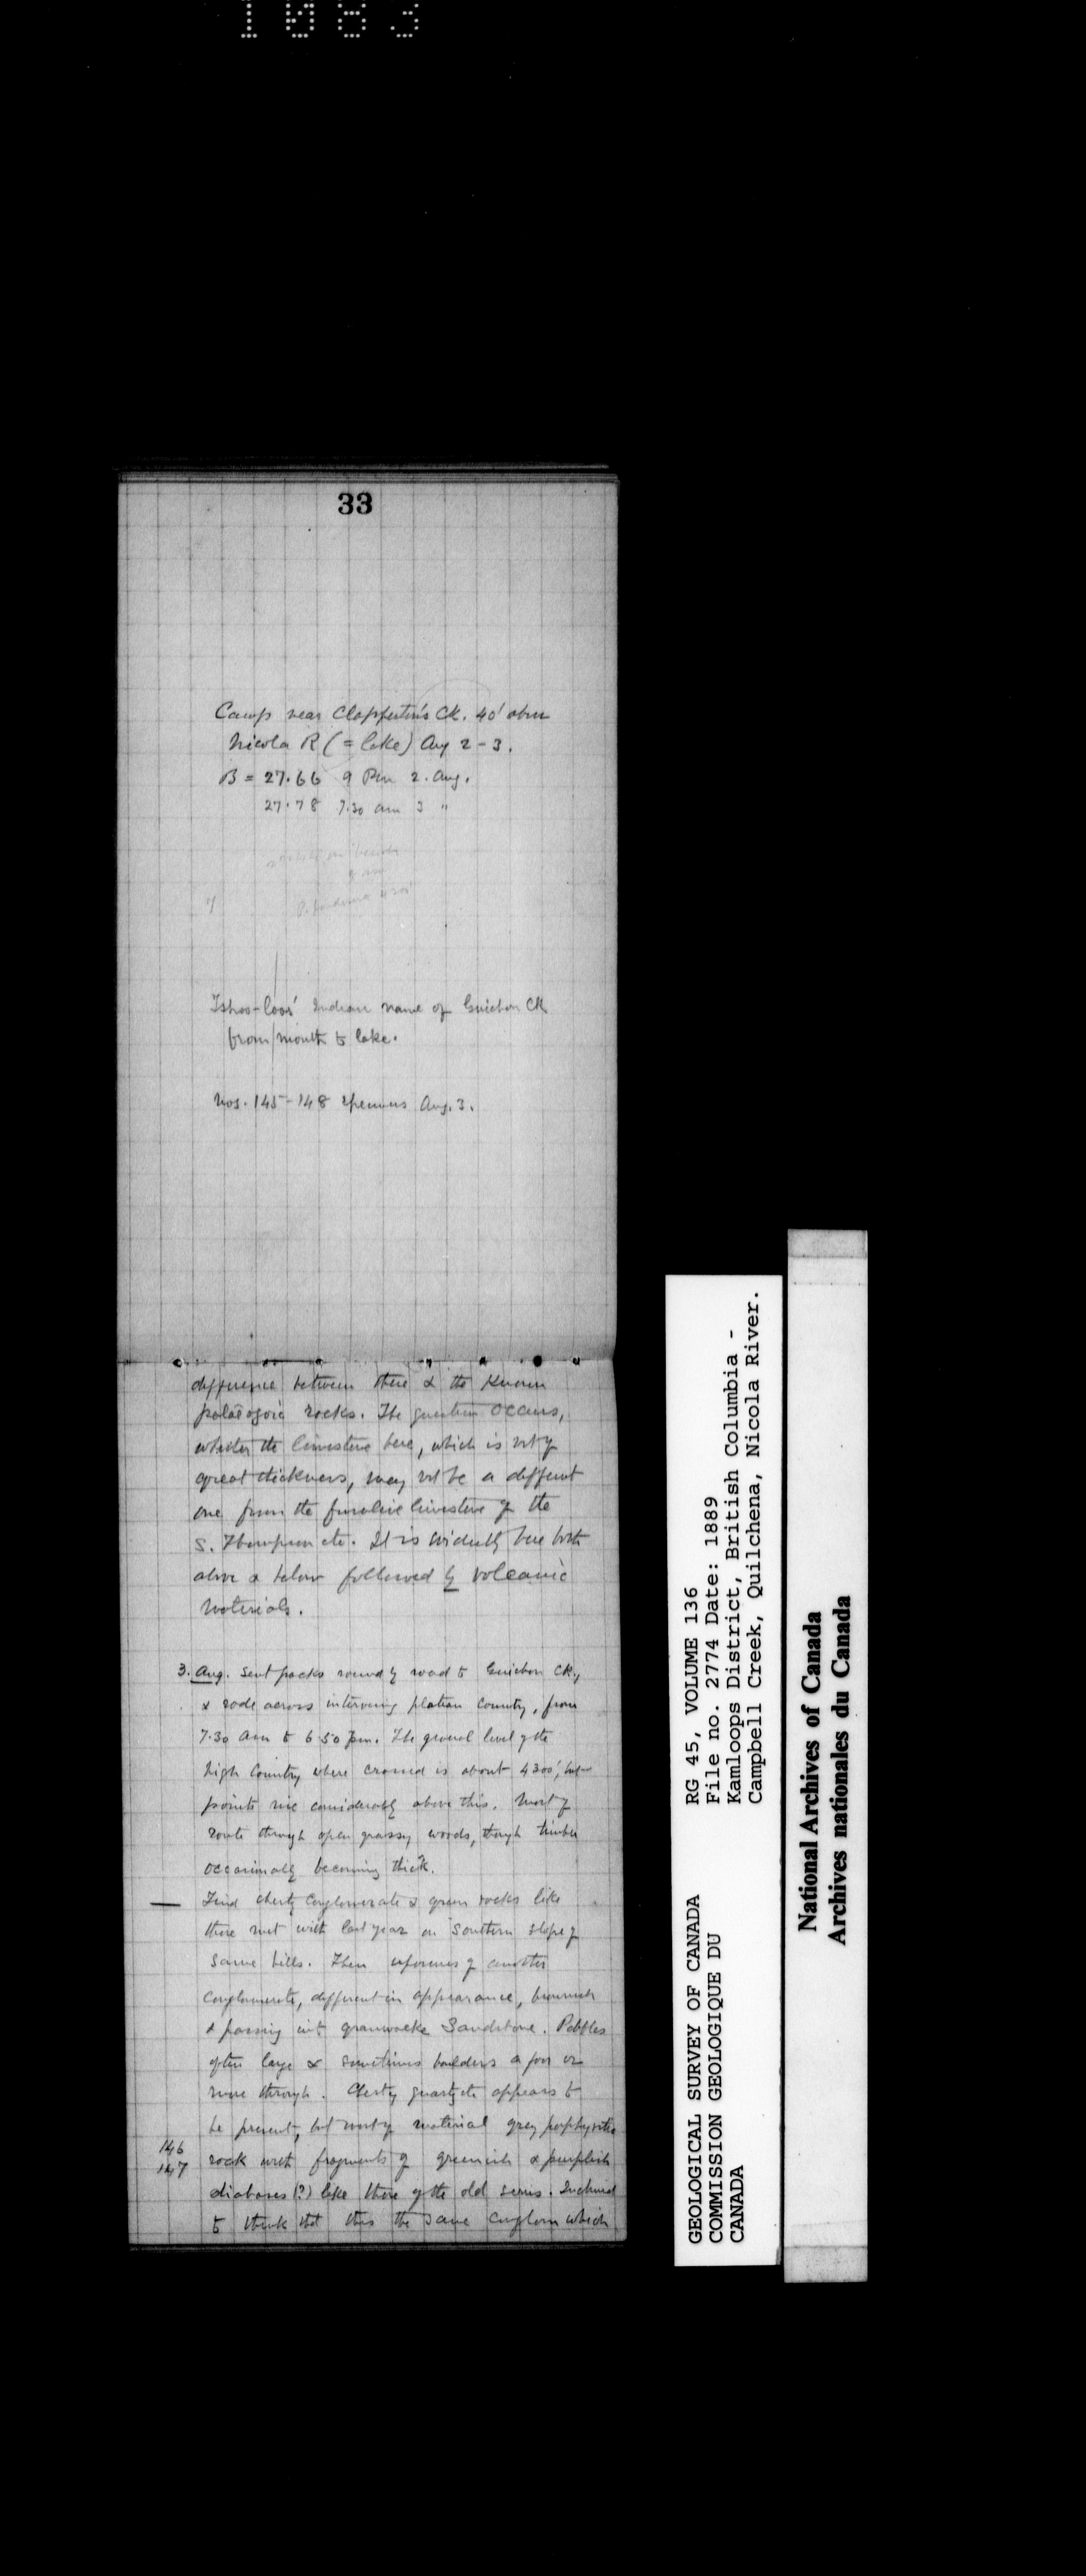 1083
33
Camp near Clapperton's Ck. 40' above
Nicola R (= lake) Aug 2-3.
B = 27.66 9 Pm 2. Aug.
27.78 7.30 am 3 "
Indian name of Guichon Ck
from mouth to lake.
Nos. 145-148 Aug. 3.
difference between these & the known
palæozoic rocks. The question occurs,
whether the limestone here, which is not of
great thickness, may not be a different
one from the limestone of the
S. Thompson etc. It is evidently here both
above & below followed by volcanic
materials.
3. Aug. Sent packs round by road to Guichon Ck,
& rode across intervening plateau country, from
7.30 am to 6.50 pm. The general level of the
high country where crossed is about 4300',
points rise considerably above this. Most of
route through open grassy woods, though timber
occasionally becoming thick.
— Find cherty conglomerate & green rocks like
those met with last year on Southern slope of
same hills. Then of another
conglomerate, different in appearance, brownish
& passing into grauwacke Sandstone. Pebbles
often large & sometimes boulders a foot or
more through. Cherty quartzite appears to
be present, but mostly material grey porphyritic
146
147 rock with fragments of greenish & purplish
diabases (?) like those of the old series. Inclined
to think that this the same conglom which
GEOLOGICAL SURVEY OF CANADA
COMMISSION GEOLOGIQUE DU
CANADA
RG 45, VOLUME 136
File no. 2774 Date: 1889
Kamloops District, British Columbia -
Campbell Creek, Quilchena, Nicola River.
National Archives of Canada
Archives nationales du Canada